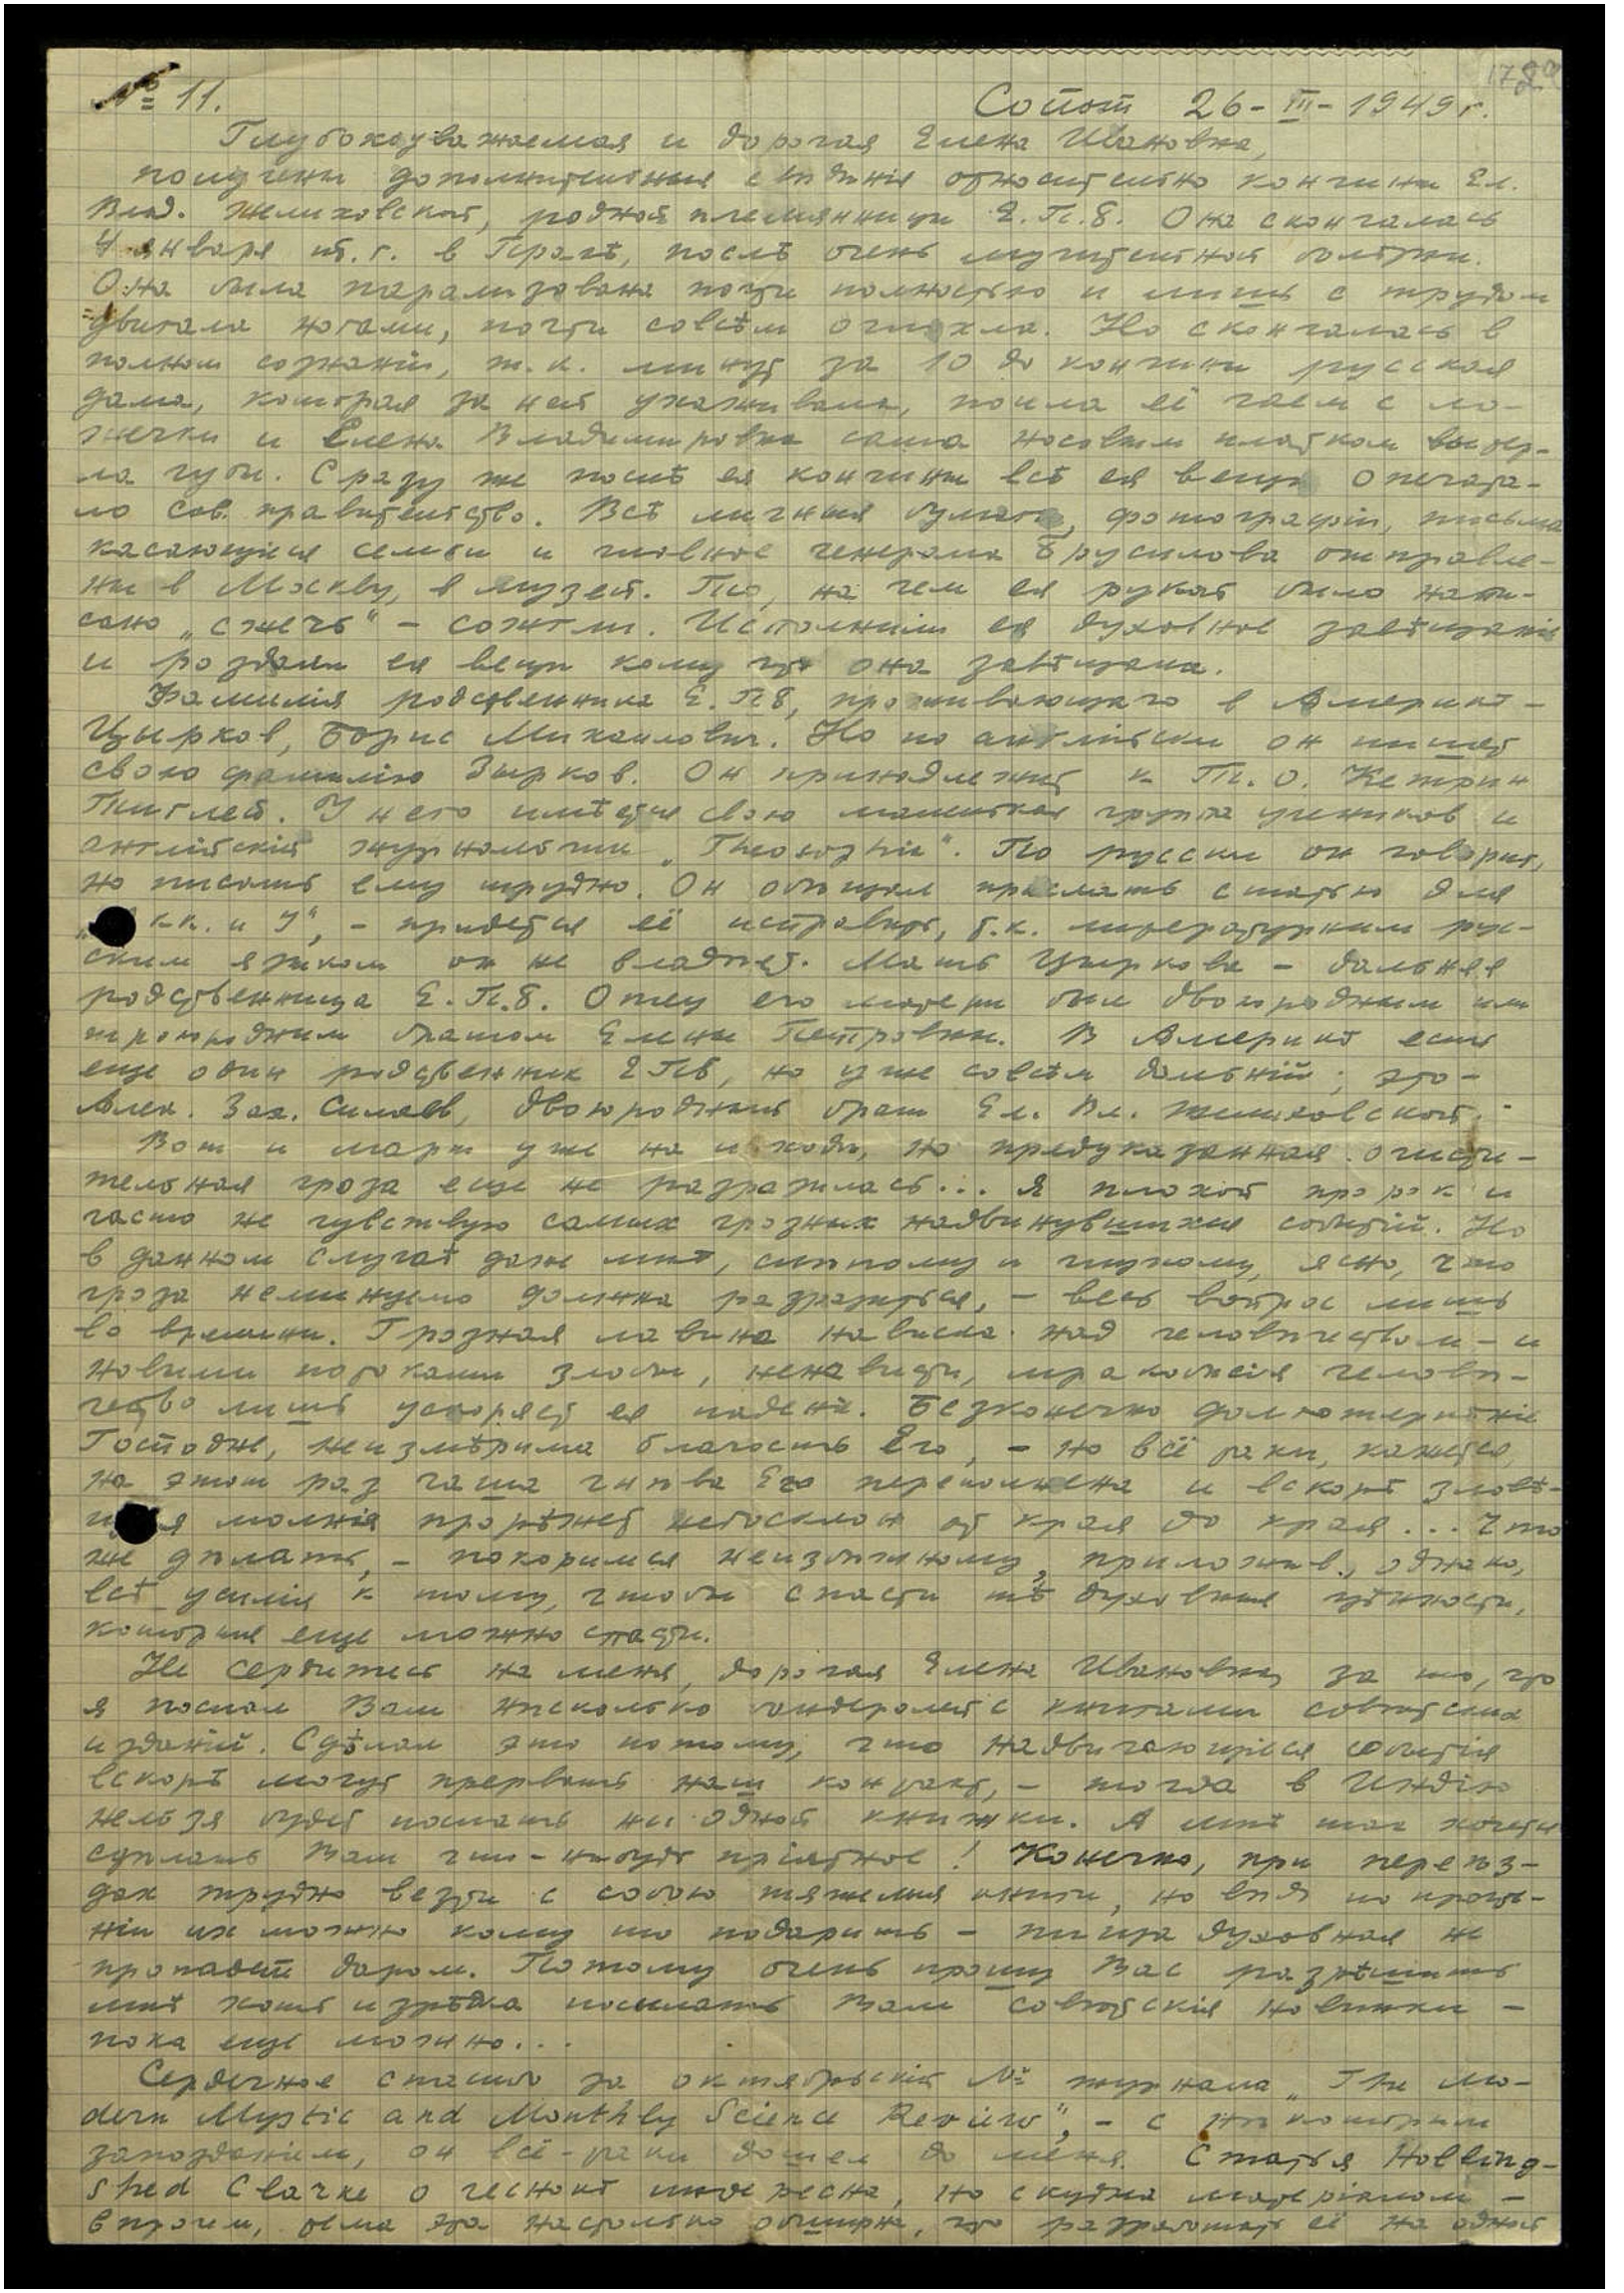 № 11.
Сопот 26-III-1949 г.
Глубокоуважаемая и дорогая Елена Ивановна,
получены дополнительныя свѣдѣнія относительно кончины Ел.
Влад. Желиховской, родной племянницы Е.П.Б. Она скончалась
4 января т.г. в Прагѣ, послѣ очень мучительной болѣзни.
Она была парализована почти полностью и лишь с трудом
двигала ногами, почти совсѣм оглохла. Но скончалась в
полном сознаніи, т.к. минут за 10 до кончины русская
дама, которая за ней ухаживала, поила её чаем с ло-
жечки и Елена Владимировна сама носовым платком вытер-
ла губы. Сразу же послѣ ея кончины всѣ ея вещи опечата-
ло сов. правительство. Всѣ личныя бумаги, фотографіи, письма
касающіеся семьи и главное генерала Брусилова отправле-
ны в Москву, в музей. То, на чем ея рукой было напи-
сано „сжечь" – сожгли. Исполнили ея духовное завѣщаніе
и роздали ея вещи кому что она завѣщала.
Фамилія родственника Е.П.Б, проживающаго в Америкѣ –
Цырков, Борис Михаилович. Но по англійски он пишет
свою фамилію Зырков. Он принадлежит к Т.О. Кетрин
Тинглей. У него имѣется свою маленькая группа учеников и
англійскій журнальчик „Theosophia". По русски он говорит,
но писать ему трудно. Он обещал прислать статью для
кк. и У", – придется её исправить, т.к. литературным рус-
ским языком он не владѣет. Мать Цыркова – дальняя
родственница Е.П.Б. Отец его матери был двоюродным или
троюродным братом Елены Петровны. В Америкѣ есть
еще один родственник ЕПБ, но уже совсѣм дальній; это –
Алек. Зах. Силаев, двоюродный брат Ел. Вл. Желиховской. –
Вот и март уже на исходѣ, но предуказанная очисти-
тельная гроза еще не разразилась... Я плохой пророк и
часто не чувствую самых грозных надвинувшихся событій. Но
в данном случаѣ даже мнѣ, слѣпому и глухому, ясно, что
гроза неминуемо должна разразиться, – весь вопрос лишь
во времени. Грозная лавина нависла над человѣчеством – и
новыми потоками злобы, ненависти, мракобѣсія человѣ-
чество лишь ускоряет ея паденіе. Безконечно долготерпѣніе
Господне, неизмѣрима благость Его, – но всё таки, кажется,
на этот раз чаша гнѣва Его переполнена и вскорѣ зловѣ-
щая молнія прорѣжет небосклон от края до края... Что
же дѣлать, – покоримся неизбѣжному, приложив, однако,
всѣ усилія к тому, чтобы спасти тѣ духовныя цѣнности,
которыя еще можно спасти.
Не сердитесь на меня, дорогая Елена Ивановна, за то, что
я послал Вам нѣсколько бандеролей с книгами совѣтских
изданій. Сдѣлал это потому, что надвигающіеся событія
вскорѣ могут прервать наш контакт, – тогда в Индію
нельзя будет послать ни одной книжки. А мнѣ так хочется
сдѣлать Вам что-нибудь пріятное! Конечно, при переѣз-
дах трудно везти с собою тяжелыя книги, но вѣдь по прочте-
ніи их можно кому то подарить – пища духовная не
пропадет даром. Потому очень прошу Вас разрѣшить
мнѣ хоть изрѣдка посылать Вам совѣтскія новинки –
пока еще можно...
Сердечное спасибо за октябрьскій № журнала „The Mo-
dern Mystic and Monthly Science Review", – с нѣкоторым
запозданіем, он всё-таки дошел до меня. Статья Holling-
shed Clarke о чеснокѣ интересна, но скудна матеріалом –
впрочем, тема эта настолько обширна, что разработать её на одной